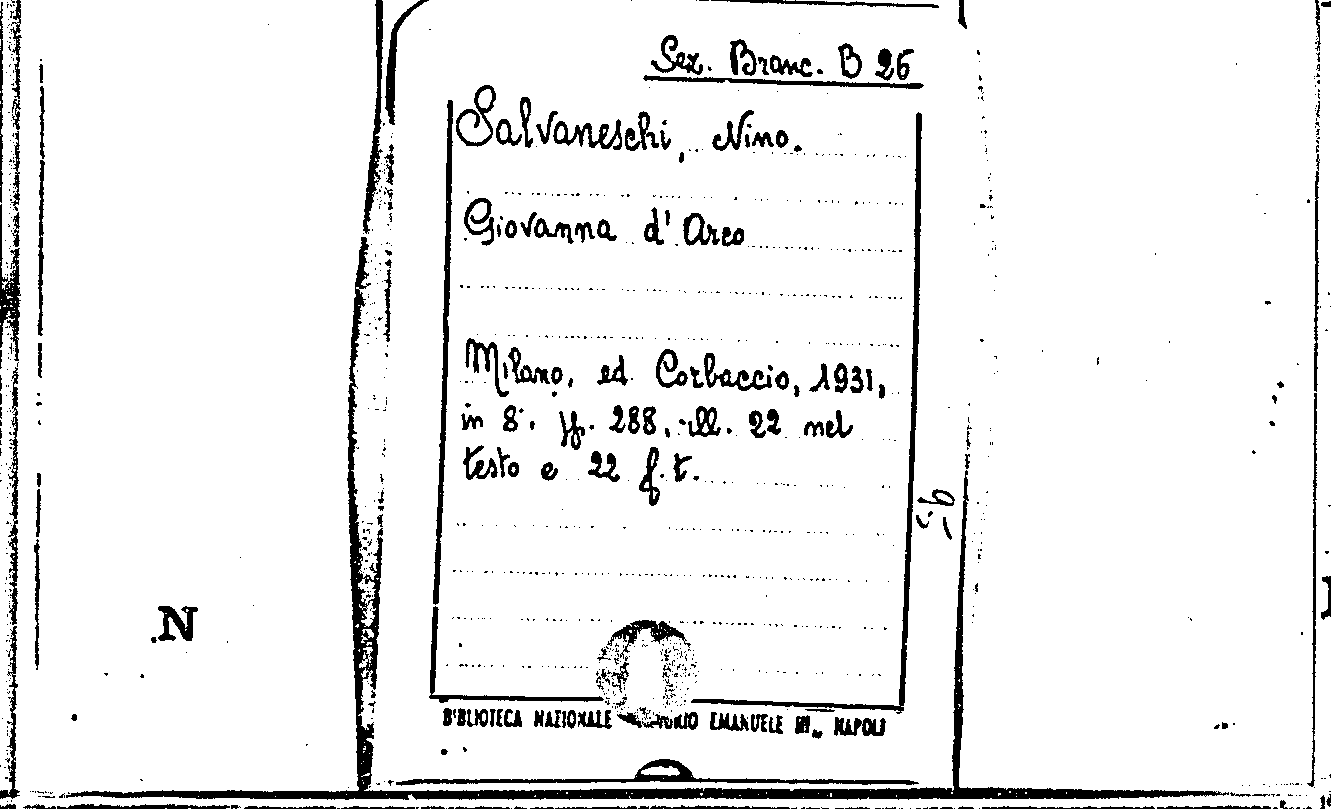 Sez. Branc. B 26
Salvaneschi, Nino.
Giovanna d'Arco
Milano, ed. Corbaccio, 1931,
in 8°. pp. 288, ill. 22 nel
testo e 22 f.t.
N
BIBLIOTECA NAZIONALE EMANUELE III - NAPOLI